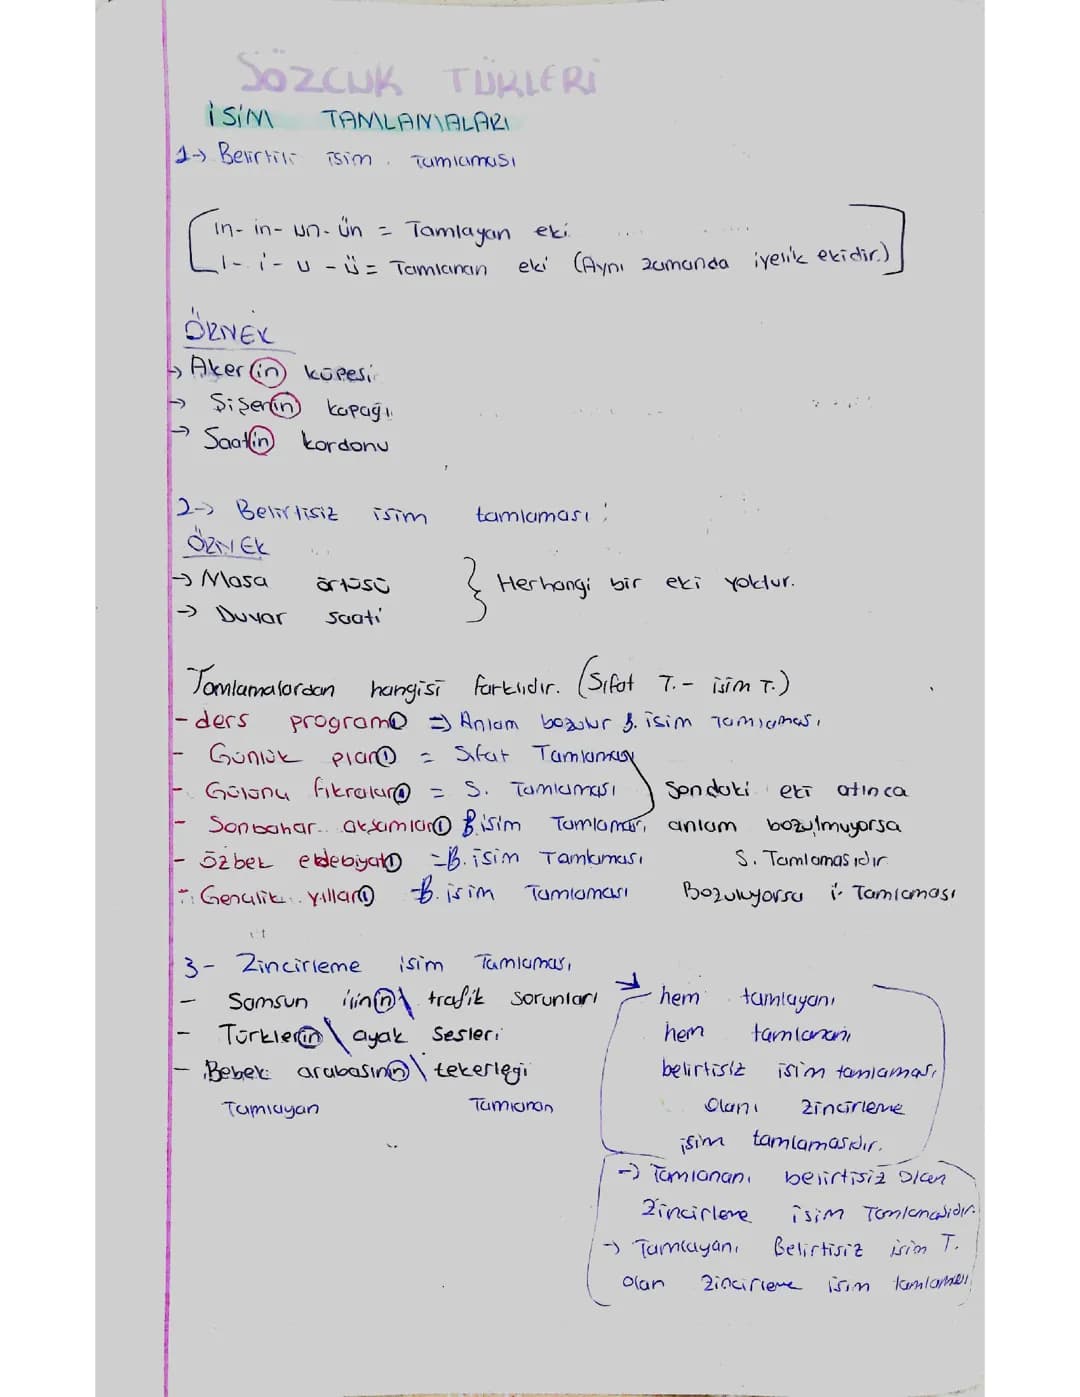 SÖZCÜK TÜRLERİ
İSİM TAMLAMALARI
1-> Belirtili isim Tamlaması
ın- in- un- ün = Tamlayan eki
ı- i- u - ü = Tamlanan eki (Aynı zamanda iyelik ekidir.)
ÖRNEK
-> Akerin küpesi
-> Şişenin kapağı
-> Saatin kordonu
2-> Belirtisiz isim tamlaması:
ÖRNEK
-> Masa örtüsü
-> Duvar saati
} Herhangi bir eki yoktur.
Tamlamalardan hangisi farklıdır. (Sıfat T.- isim T.)
- ders programı => Anlam bozulur B. isim Tamlaması
- Günlük planı = Sıfat Tamlaması
- Gülünç fıkraları = S. Tamlaması
- Sonbahar akşamları B. isim Tamlaması
- Özbek edebiyatı = B. isim Tamlaması
- Gençlik yılları = B. isim Tamlaması
Sondaki eki atınca
anlam bozulmuyorsa
S. Tamlamasıdır
Bozuluyorsa i. Tamlaması
3- Zincirleme isim Tamlaması
- Samsun ilinin \ trafik sorunları
- Türklerin \ ayak sesleri
- Bebek arabasının \ tekerleği
Tamlayan Tamlanan
-> hem tamlayanı
hem tamlananı
belirtisiz isim tamlaması
olanı zincirleme
isim tamlamasıdır.
-> Tamlananı belirtisiz olan
Zincirleme isim Tamlamasıdır.
-> Tamlayanı Belirtisiz isim T.
olan zincirleme isim tamlaması